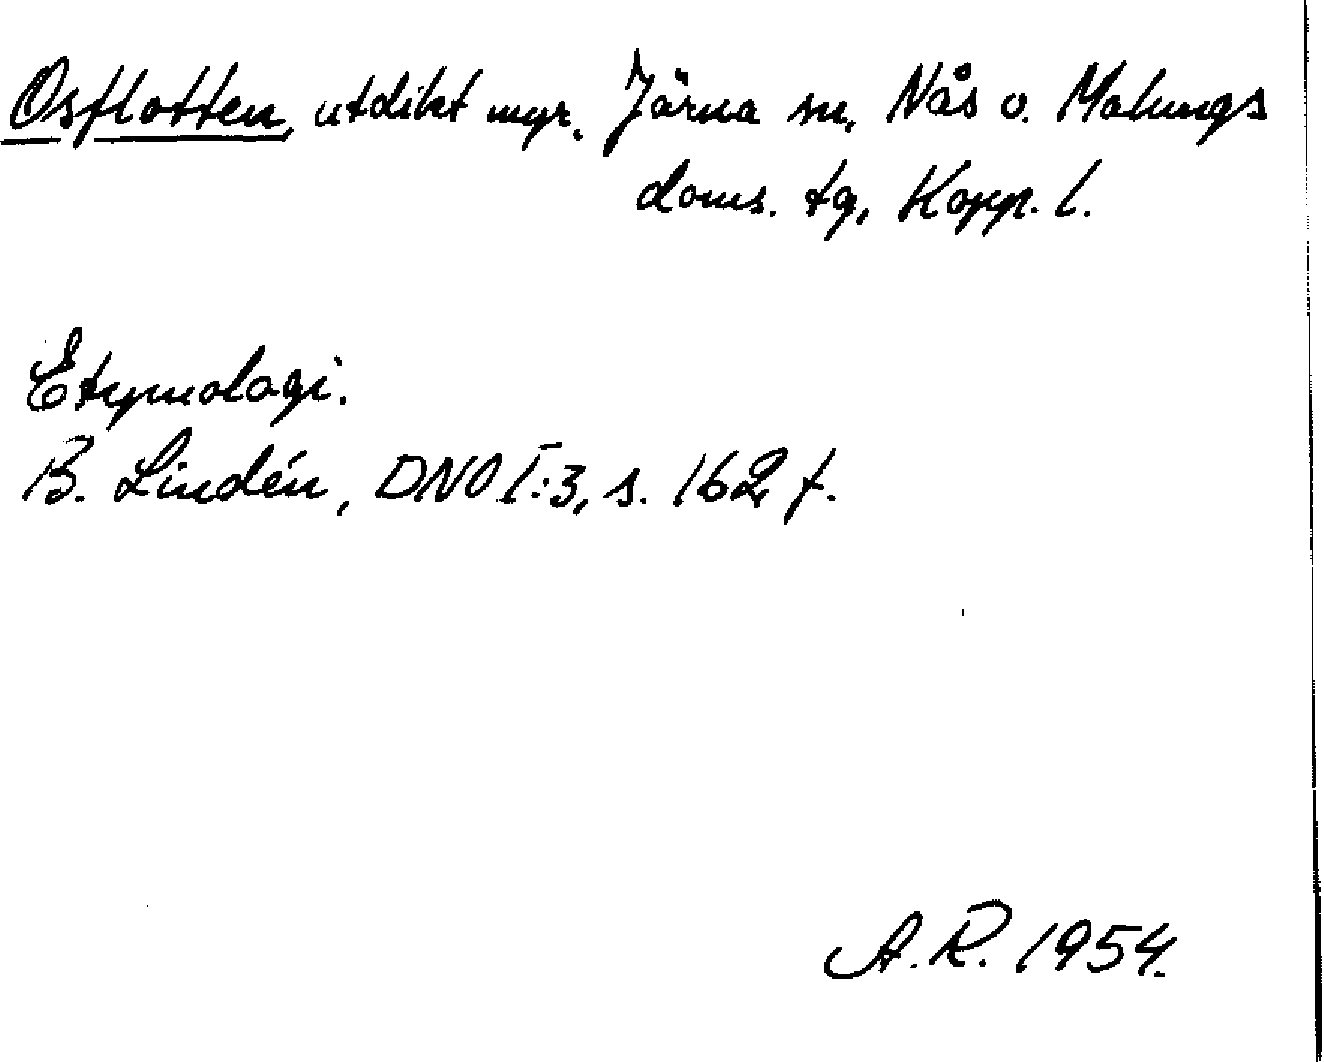 Osflotten, utdikt myr. Järna sn, Nås o. Malungs
doms. tg, Kopp. l.
Etymologi.
B. Lindén, DNO I:3, s. 162 f.
A.R. 1954.